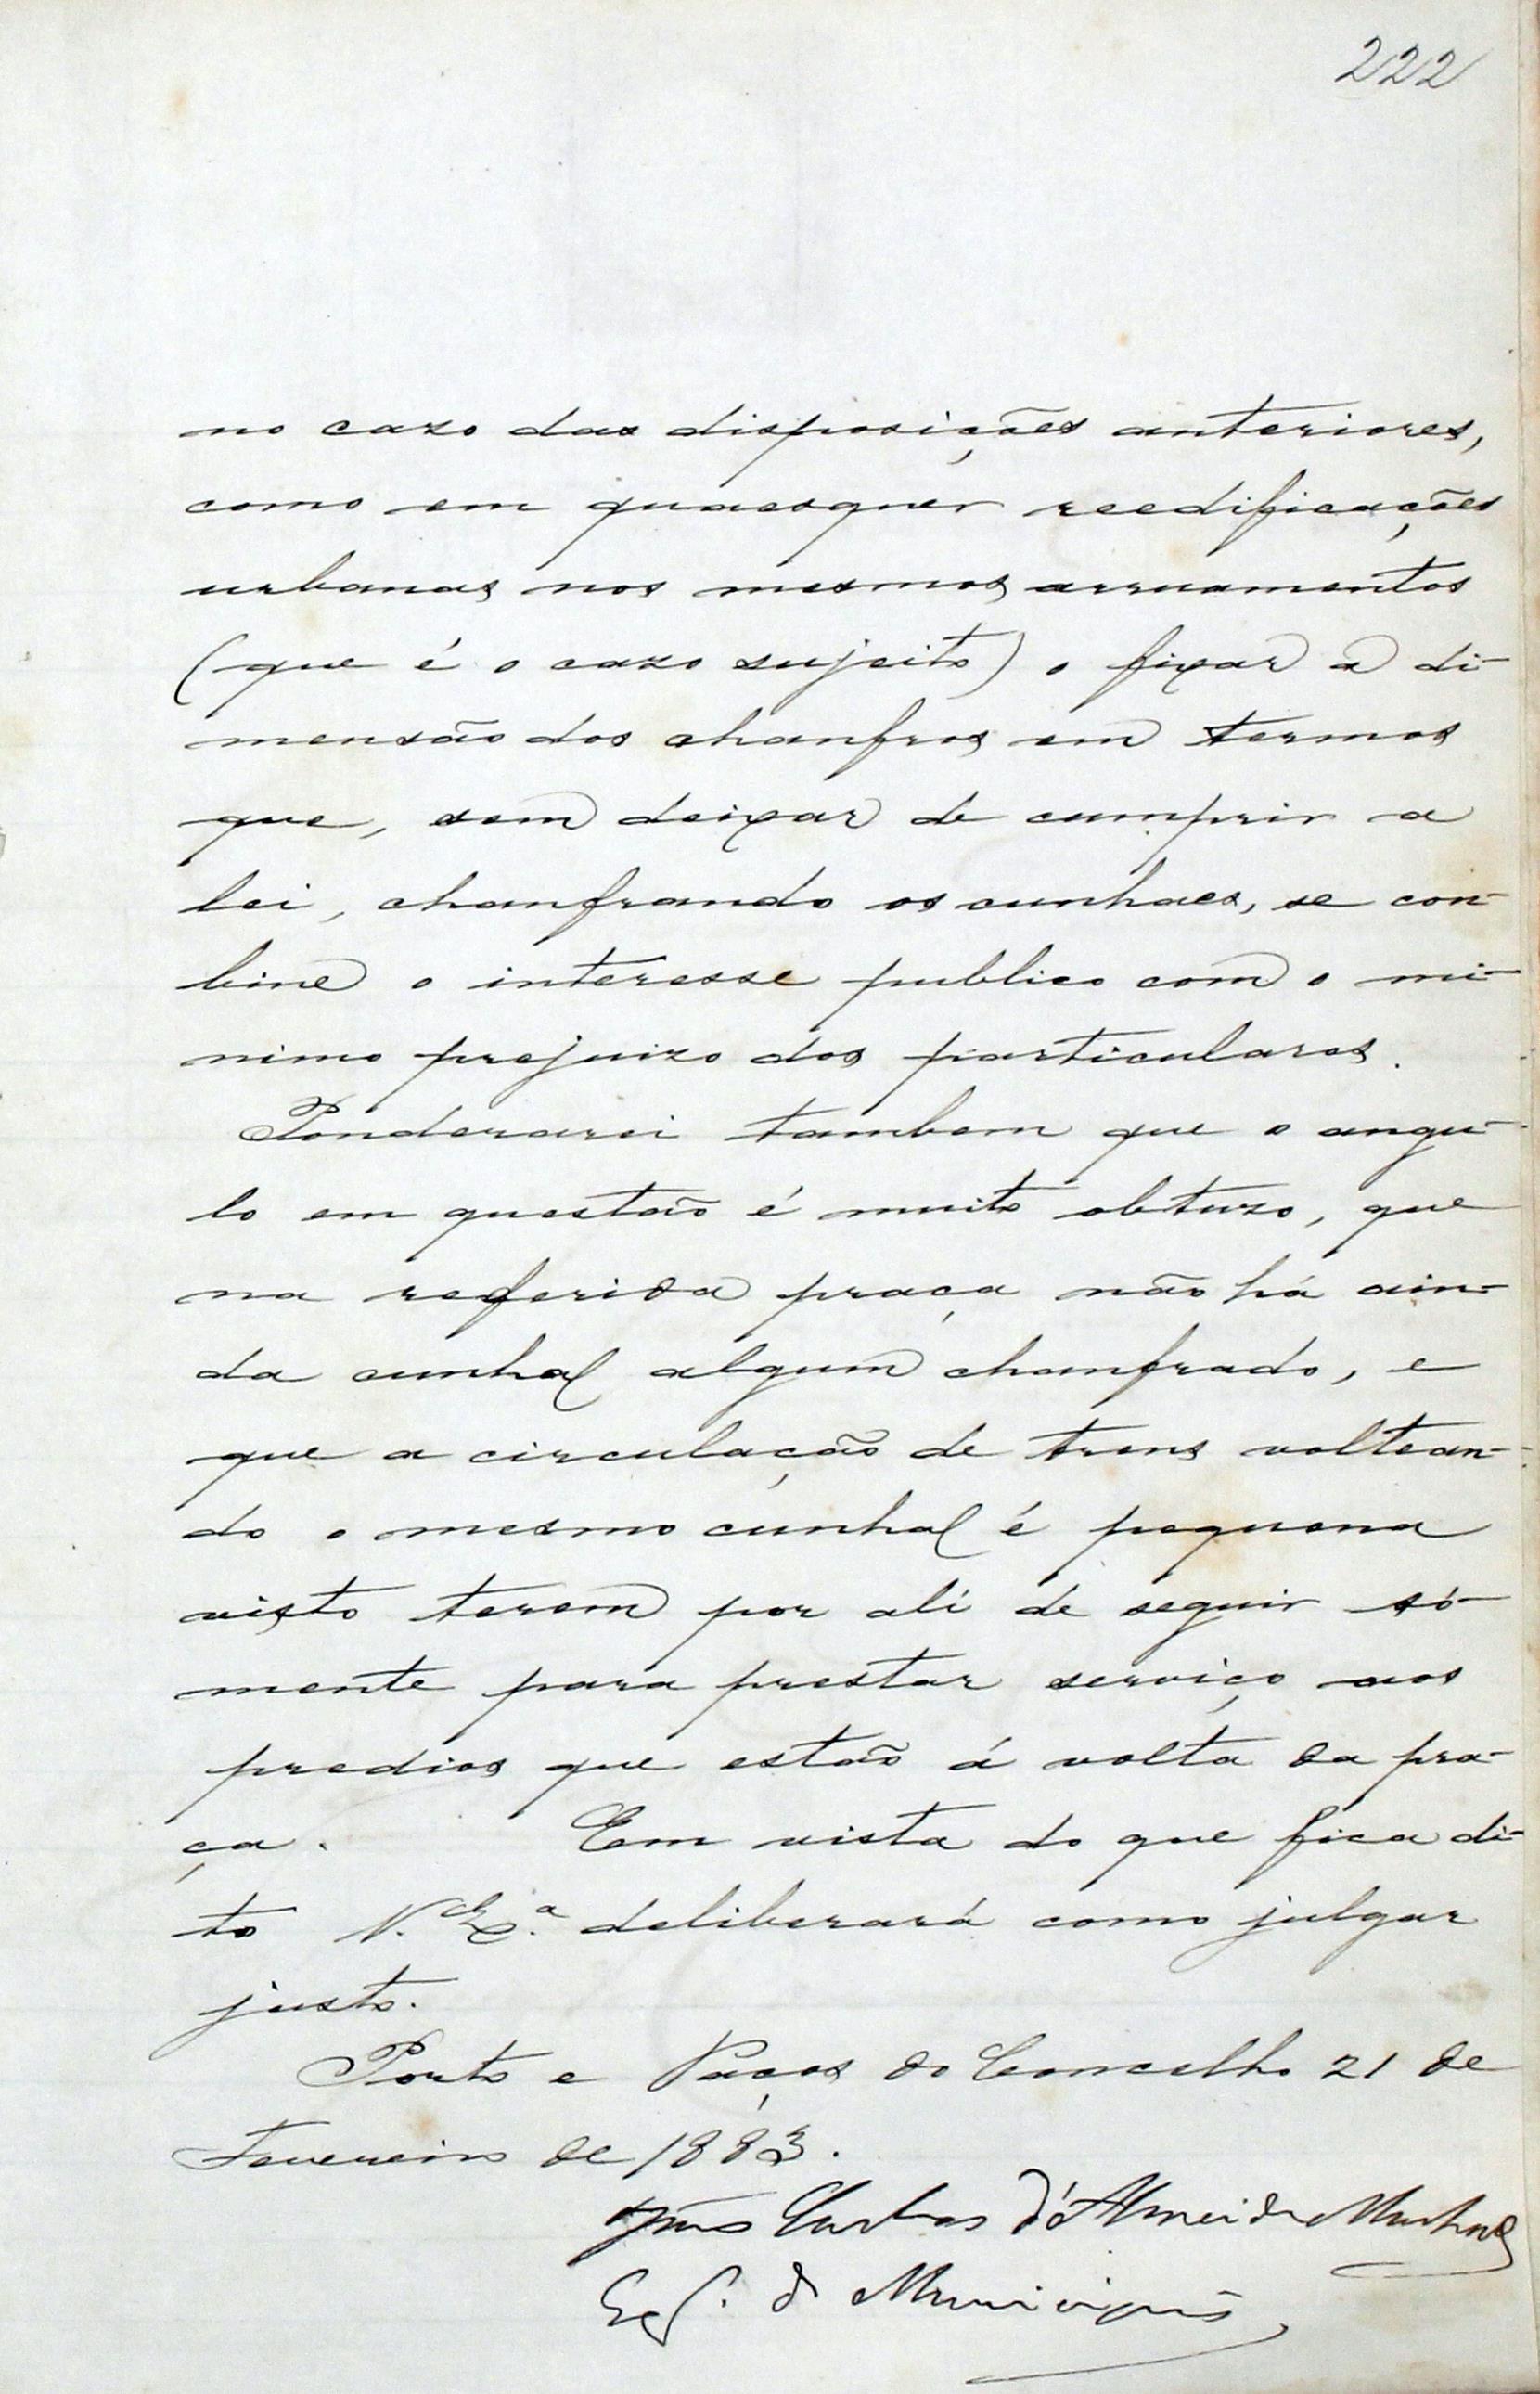 222
no cazo das disposições anteriores,
como em quaesquer reedificações
urbanas nos mesmos arruamentos
(que é o cazo sujeito) o fixar a di-
mensão dos chanfros em termos
que, sem deixar de cumprir a
lei, chanfrando os cunhaes, se con-
bine o interesse publico com o mi-
nimo prejuizo dos particulares.
Ponderarei tambem que o angu-
lo em questão é muito obtuzo, que
na referida praça não há ain-
da cunhal algum chanfrado, e
que a circulação de trens voltean-
do o mesmo cunhal é pequena
visto terem por ali de seguir só-
mente para prestar serviço aos
predios que estão á volta da pra-
ça. Em vista do que fica di-
to V. Ex.ª deliberará como julgar
justo.
Porto e Paços do Concelho 21 de
Fevereiro de 1883.
Carlos d'Almeida Machado
do Municipio